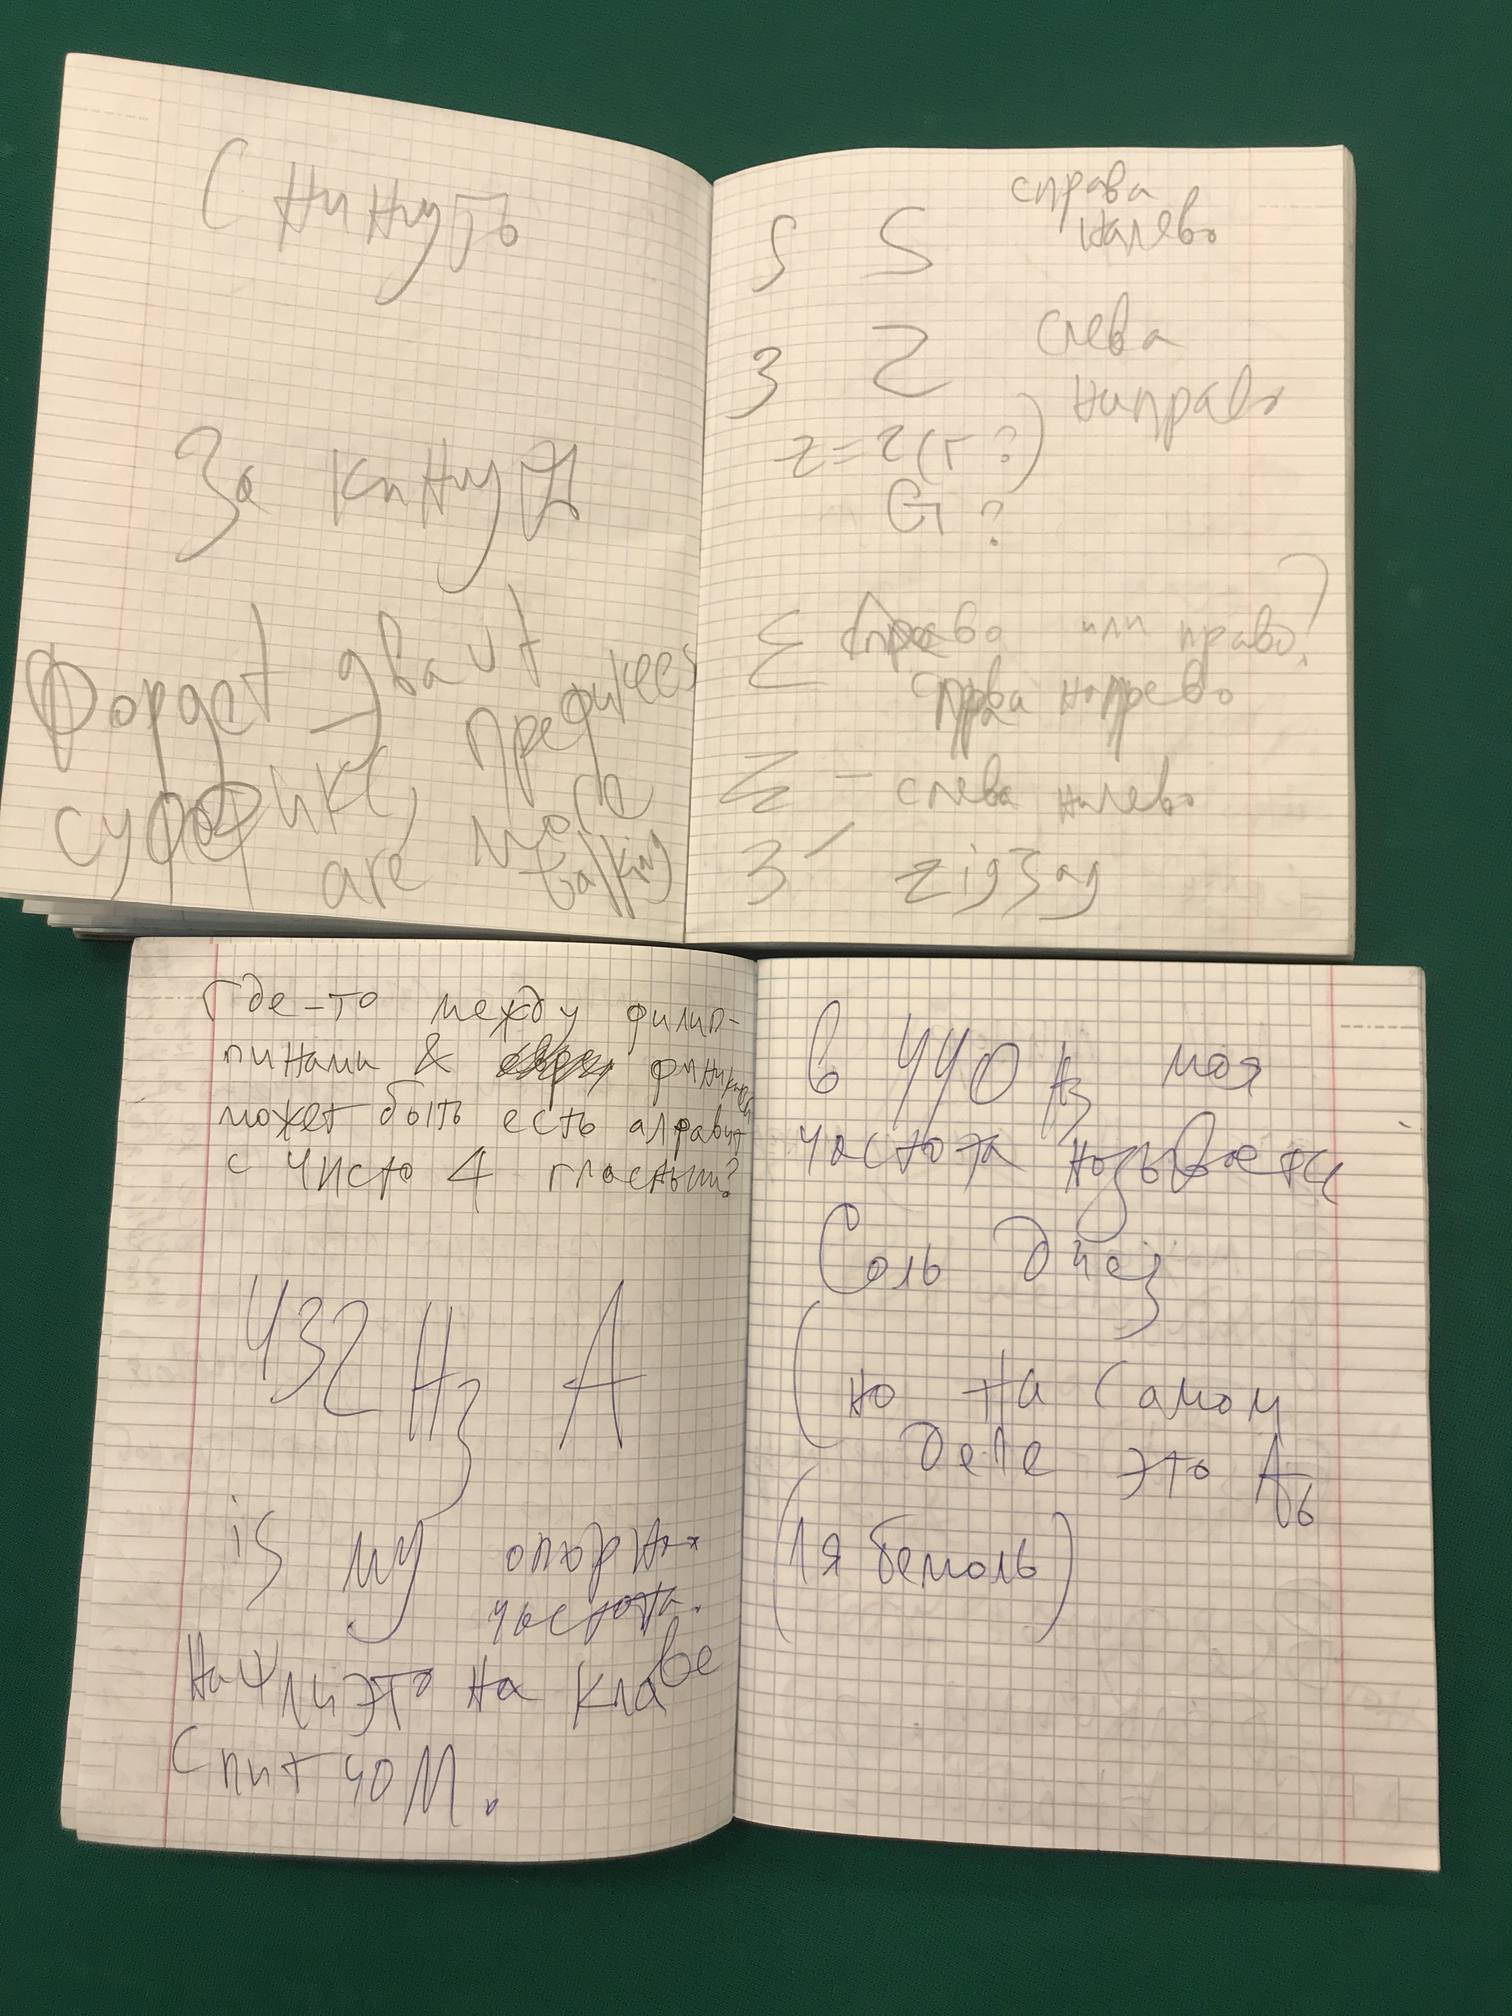 С нинуть
За кинуть
Фордет двa ut
суффикс, префикces
are more
talking
S S справа
налево
З Z слева
направо
z = 2 (г?)
G?
Σ или право?
справа направо
— слева налево
З zigзag
Где-то между филип-
пинами &
может быть есть алфавит
с чисто 4 гласными?
432 Hz A
is my опорная
частота.
Нашли это на клаве
с питчом.
В 440 Hz моя
частота называется
Соль диез
(но на самом
деле это Ab
(Ля бемоль)